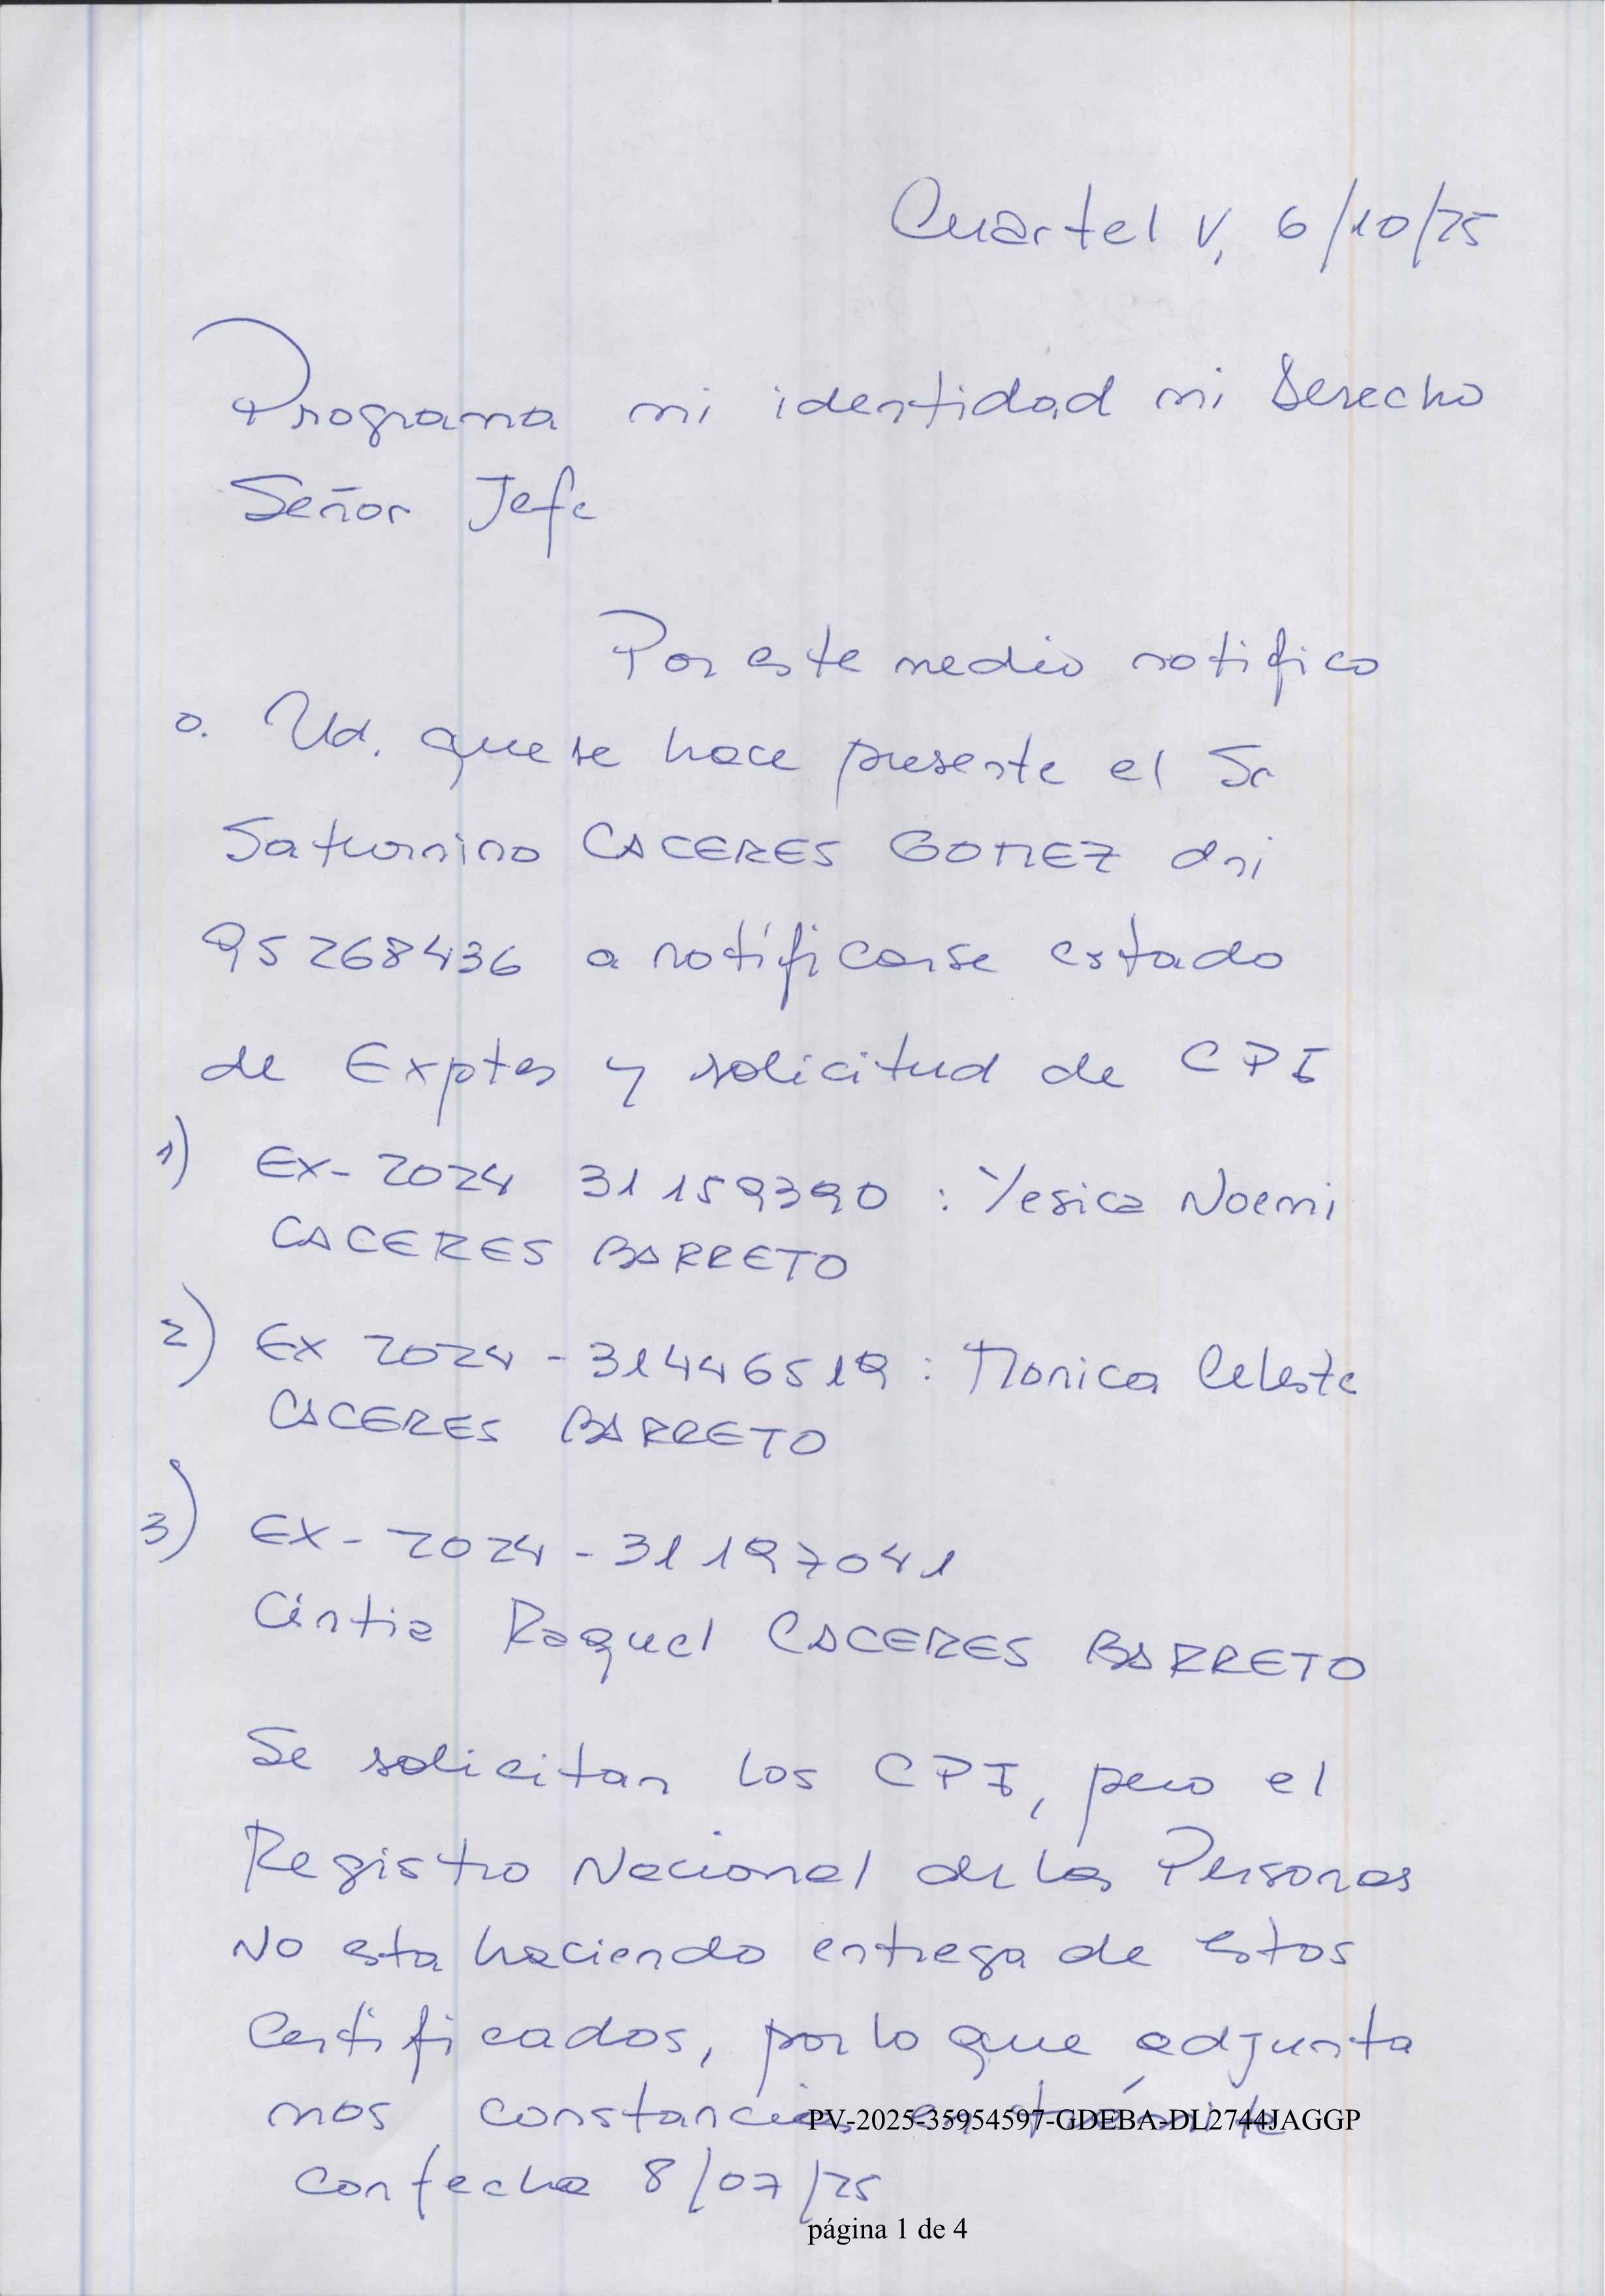 Cuartel V, 6/10/25
Programa mi identidad mi Derecho
Señor Jefe
Por este medio notifico
a Ud. que se hace presente el Sr
Saturnino CACERES GOMEZ dni
95268436 a notificarse estado
de Exptes y solicitud de CPI
1) EX-2024 31159390 : Yesica Noemi
CACERES BARRETO
2) EX 2024-31446519 : Monica Celeste
CACERES BARRETO
3) EX-2024-31197041
Cintia Raquel CACERES BARRETO
Se solicitan los CPI, pero el
Registro Nacional de las Personas
No esta haciendo entrega de estos
Certificados, por lo que adjunta
mos constancias en trámite
PV-2025-35954597-GDEBA-DL2744JAGGP
con fecha 8/07/25
página 1 de 4